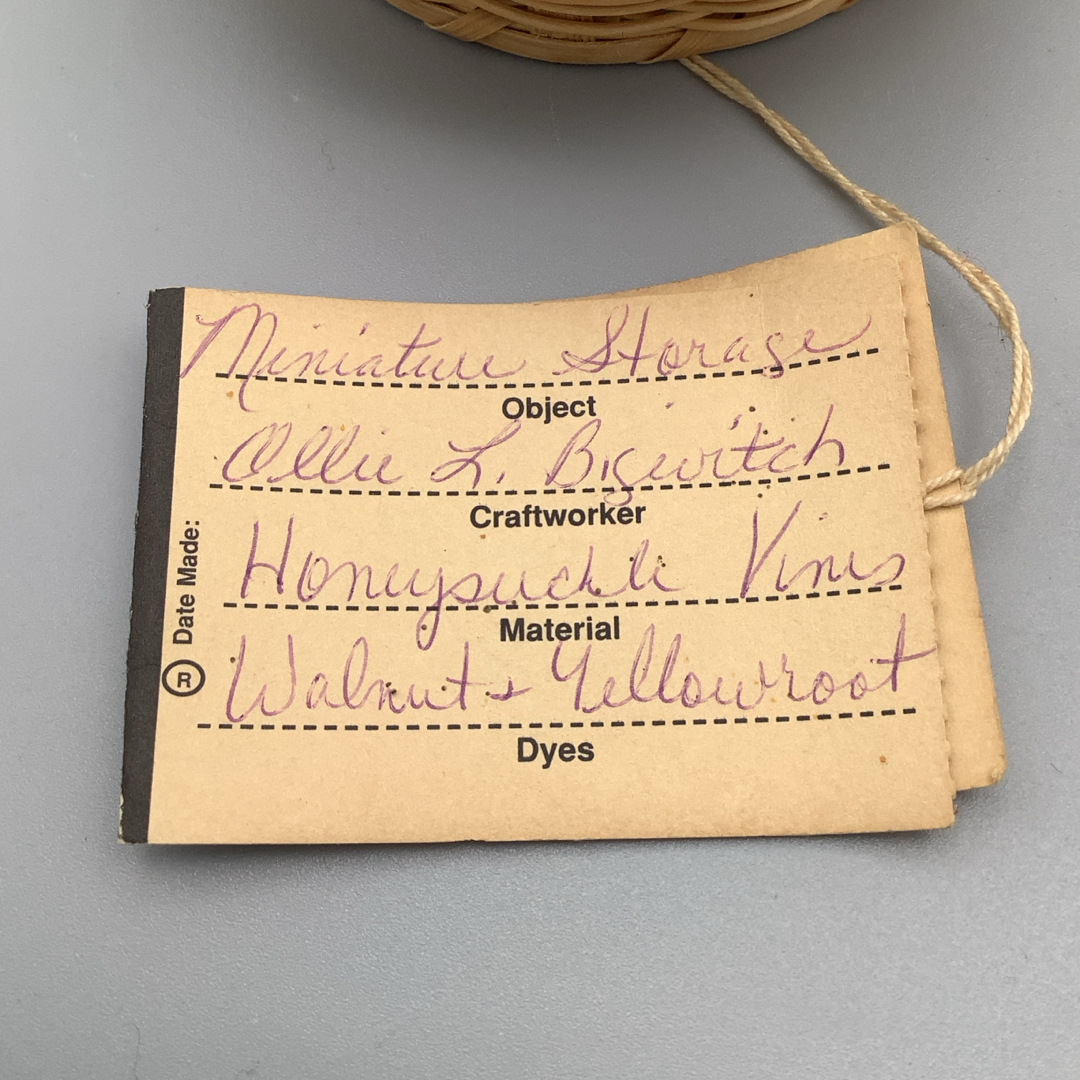 Miniature Storage
Object
Ollie L. Bigwitch
Craftworker
Honeysuckle Vines
Material
Walnut + Yellowroot
Dyes
Date Made:
®